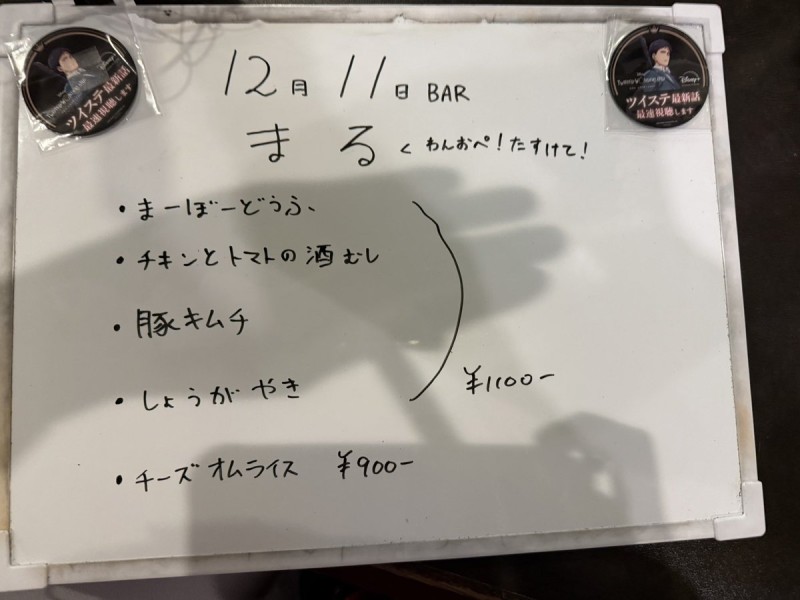 12月 11日 BAR
まる < わんおペ!たすけて!
・まーぼーどうふ、
・チキンとトマトの酒むし
・豚キムチ
・しょうがやき
¥1100-
・チーズオムライス ¥900-
ツイステ最新話
最速視聴します
Disney+
ツイステ最新話
最速視聴します